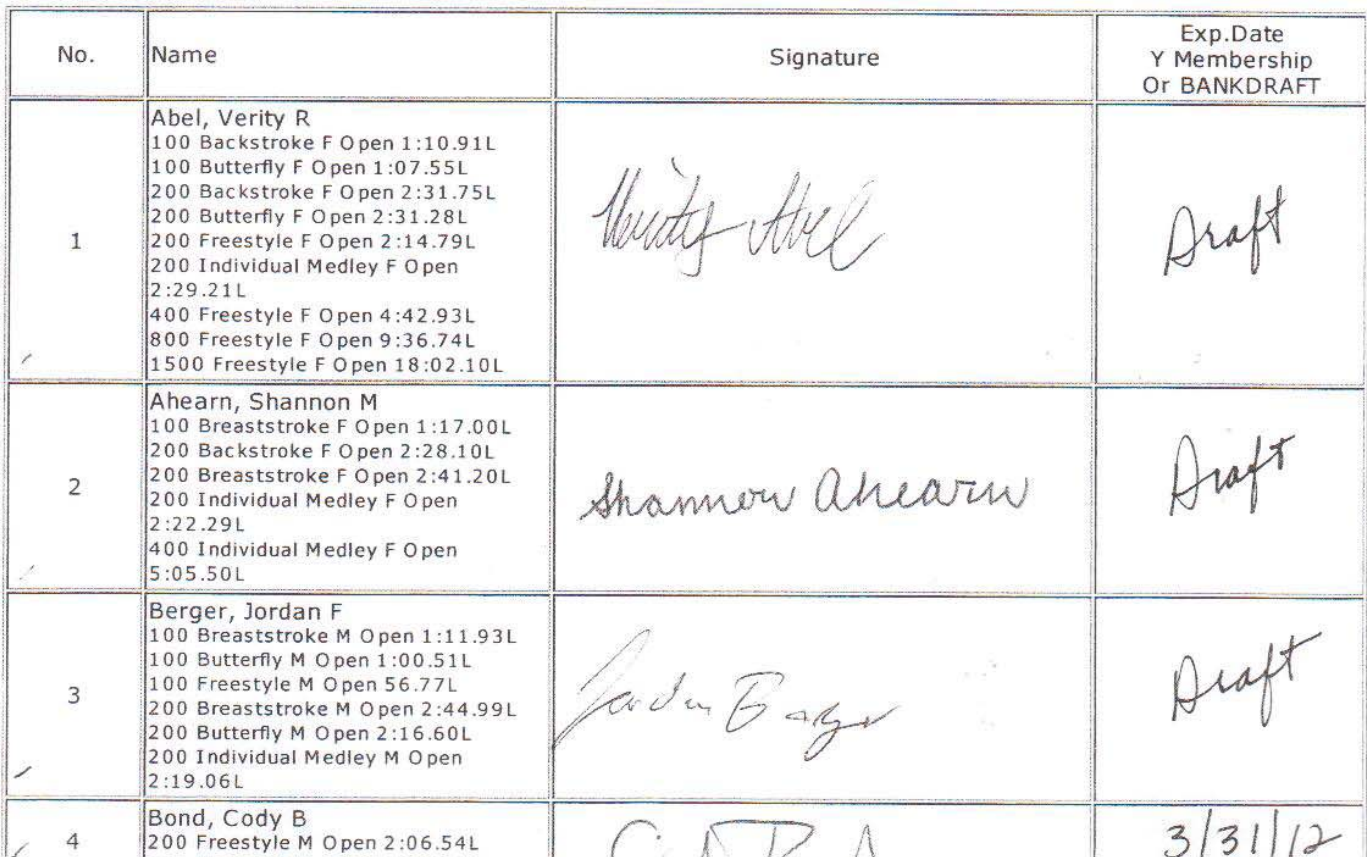 No.
Name
Signature
Exp.Date
Y Membership
Or BANKDRAFT
1
Abel, Verity R
100 Backstroke F Open 1:10.91L
100 Butterfly F Open 1:07.55L
200 Backstroke F Open 2:31.75L
200 Butterfly F Open 2:31.28L
200 Freestyle F Open 2:14.79L
200 Individual Medley F Open
2:29.21L
400 Freestyle F Open 4:42.93L
800 Freestyle F Open 9:36.74L
1500 Freestyle F Open 18:02.10L
Verity Abel
Draft
2
Ahearn, Shannon M
100 Breaststroke F Open 1:17.00L
200 Backstroke F Open 2:28.10L
200 Breaststroke F Open 2:41.20L
200 Individual Medley F Open
2:22.29L
400 Individual Medley F Open
5:05.50L
Shannon Ahearn
Draft
3
Berger, Jordan F
100 Breaststroke M Open 1:11.93L
100 Butterfly M Open 1:00.51L
100 Freestyle M Open 56.77L
200 Breaststroke M Open 2:44.99L
200 Butterfly M Open 2:16.60L
200 Individual Medley M Open
2:19.06L
Jordan Berger
Draft
4
Bond, Cody B
200 Freestyle M Open 2:06.54L
3/31/12